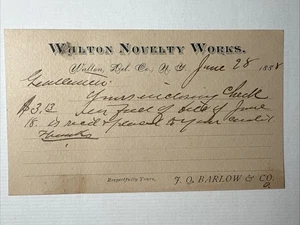 WALTON NOVELTY WORKS.
Walton, Del. Co., N. Y. June 28 1888
Gentlemen:
Yours enclosing Check
$3.13 in full of bill of June
18. is rec'd & placed to your credit
Thanks
Respectfully Yours, J. Q. BARLOW & CO.